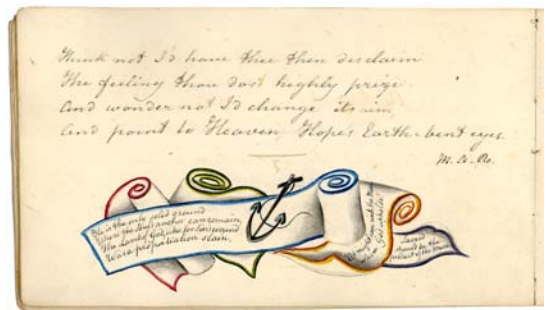 Think not I'd have thee then disclaim
The feeling thou dost highly prize
And wonder not I'd change its aim
And point to Heaven, Hope's Earth-bent eyes.
M. A. Ro.
He is the only solid ground
Where the Soul's anchor can remain,
The Lamb of God, who for
Was a propitiation slain.
Sacred
should be the
product of the